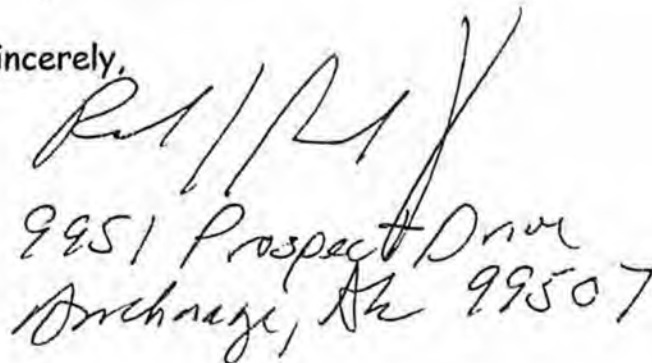 incerely,
9951 Prospect Drive
Anchorage, Ak 99507